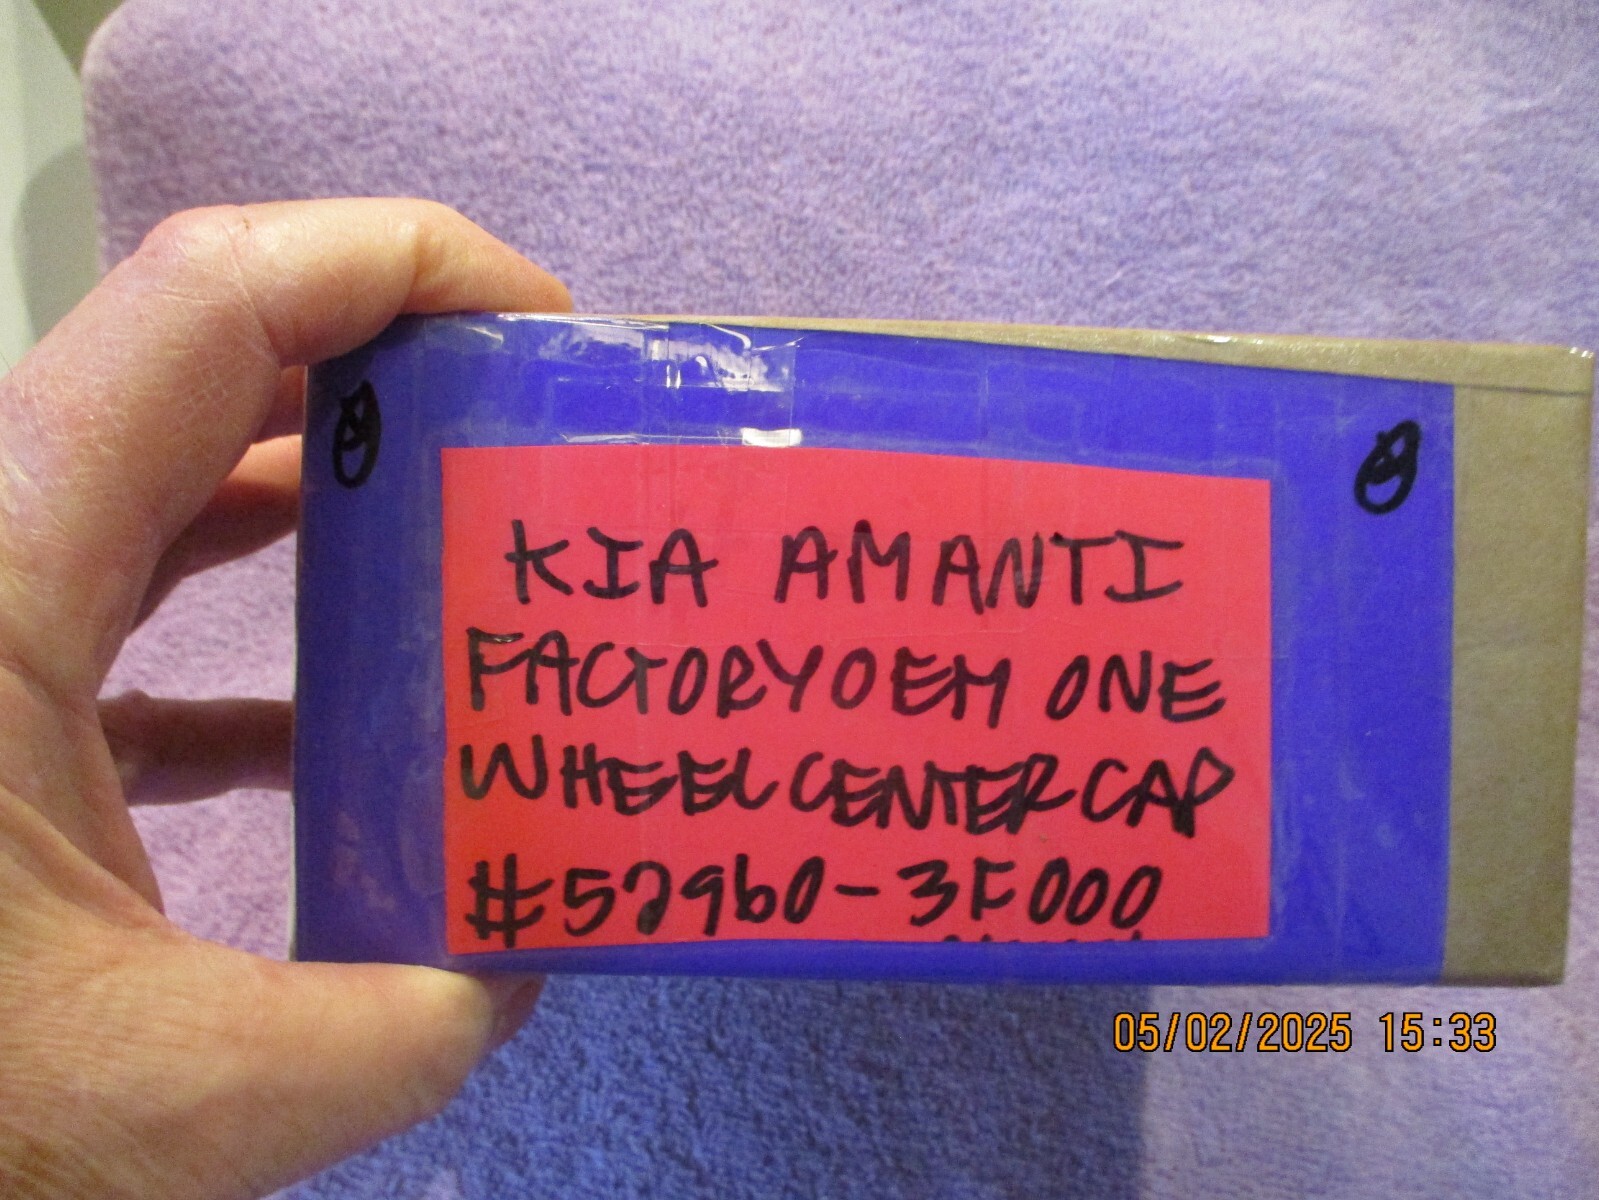 KIA AMANTI
FACTORY OEM ONE
WHEEL CENTER CAP
#52960-3F000
05/02/2025 15:33